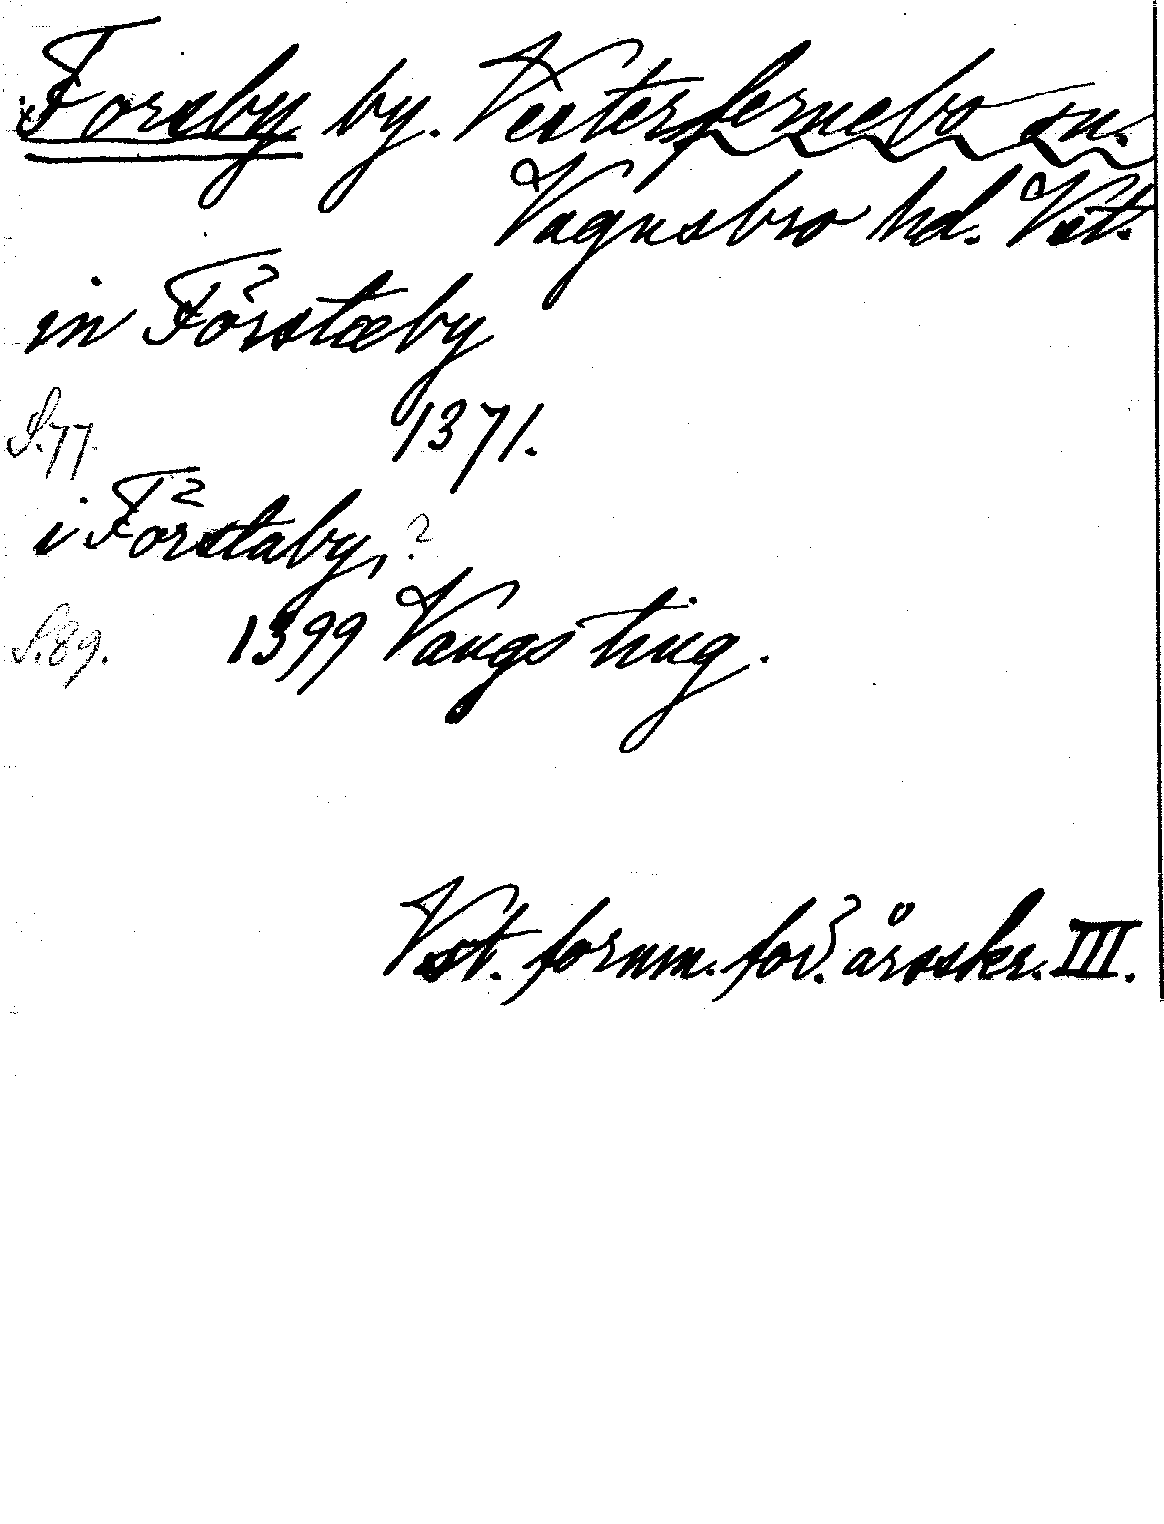 Forsby by. Vesterfernebo sn.
Vagnsbro hd. Vst.
in Förstæby
S. 77. 1371.
i Förstaby, ?
S. 89. 1399 Vangs ting.
Vst. fornm. för. årsskr. III.